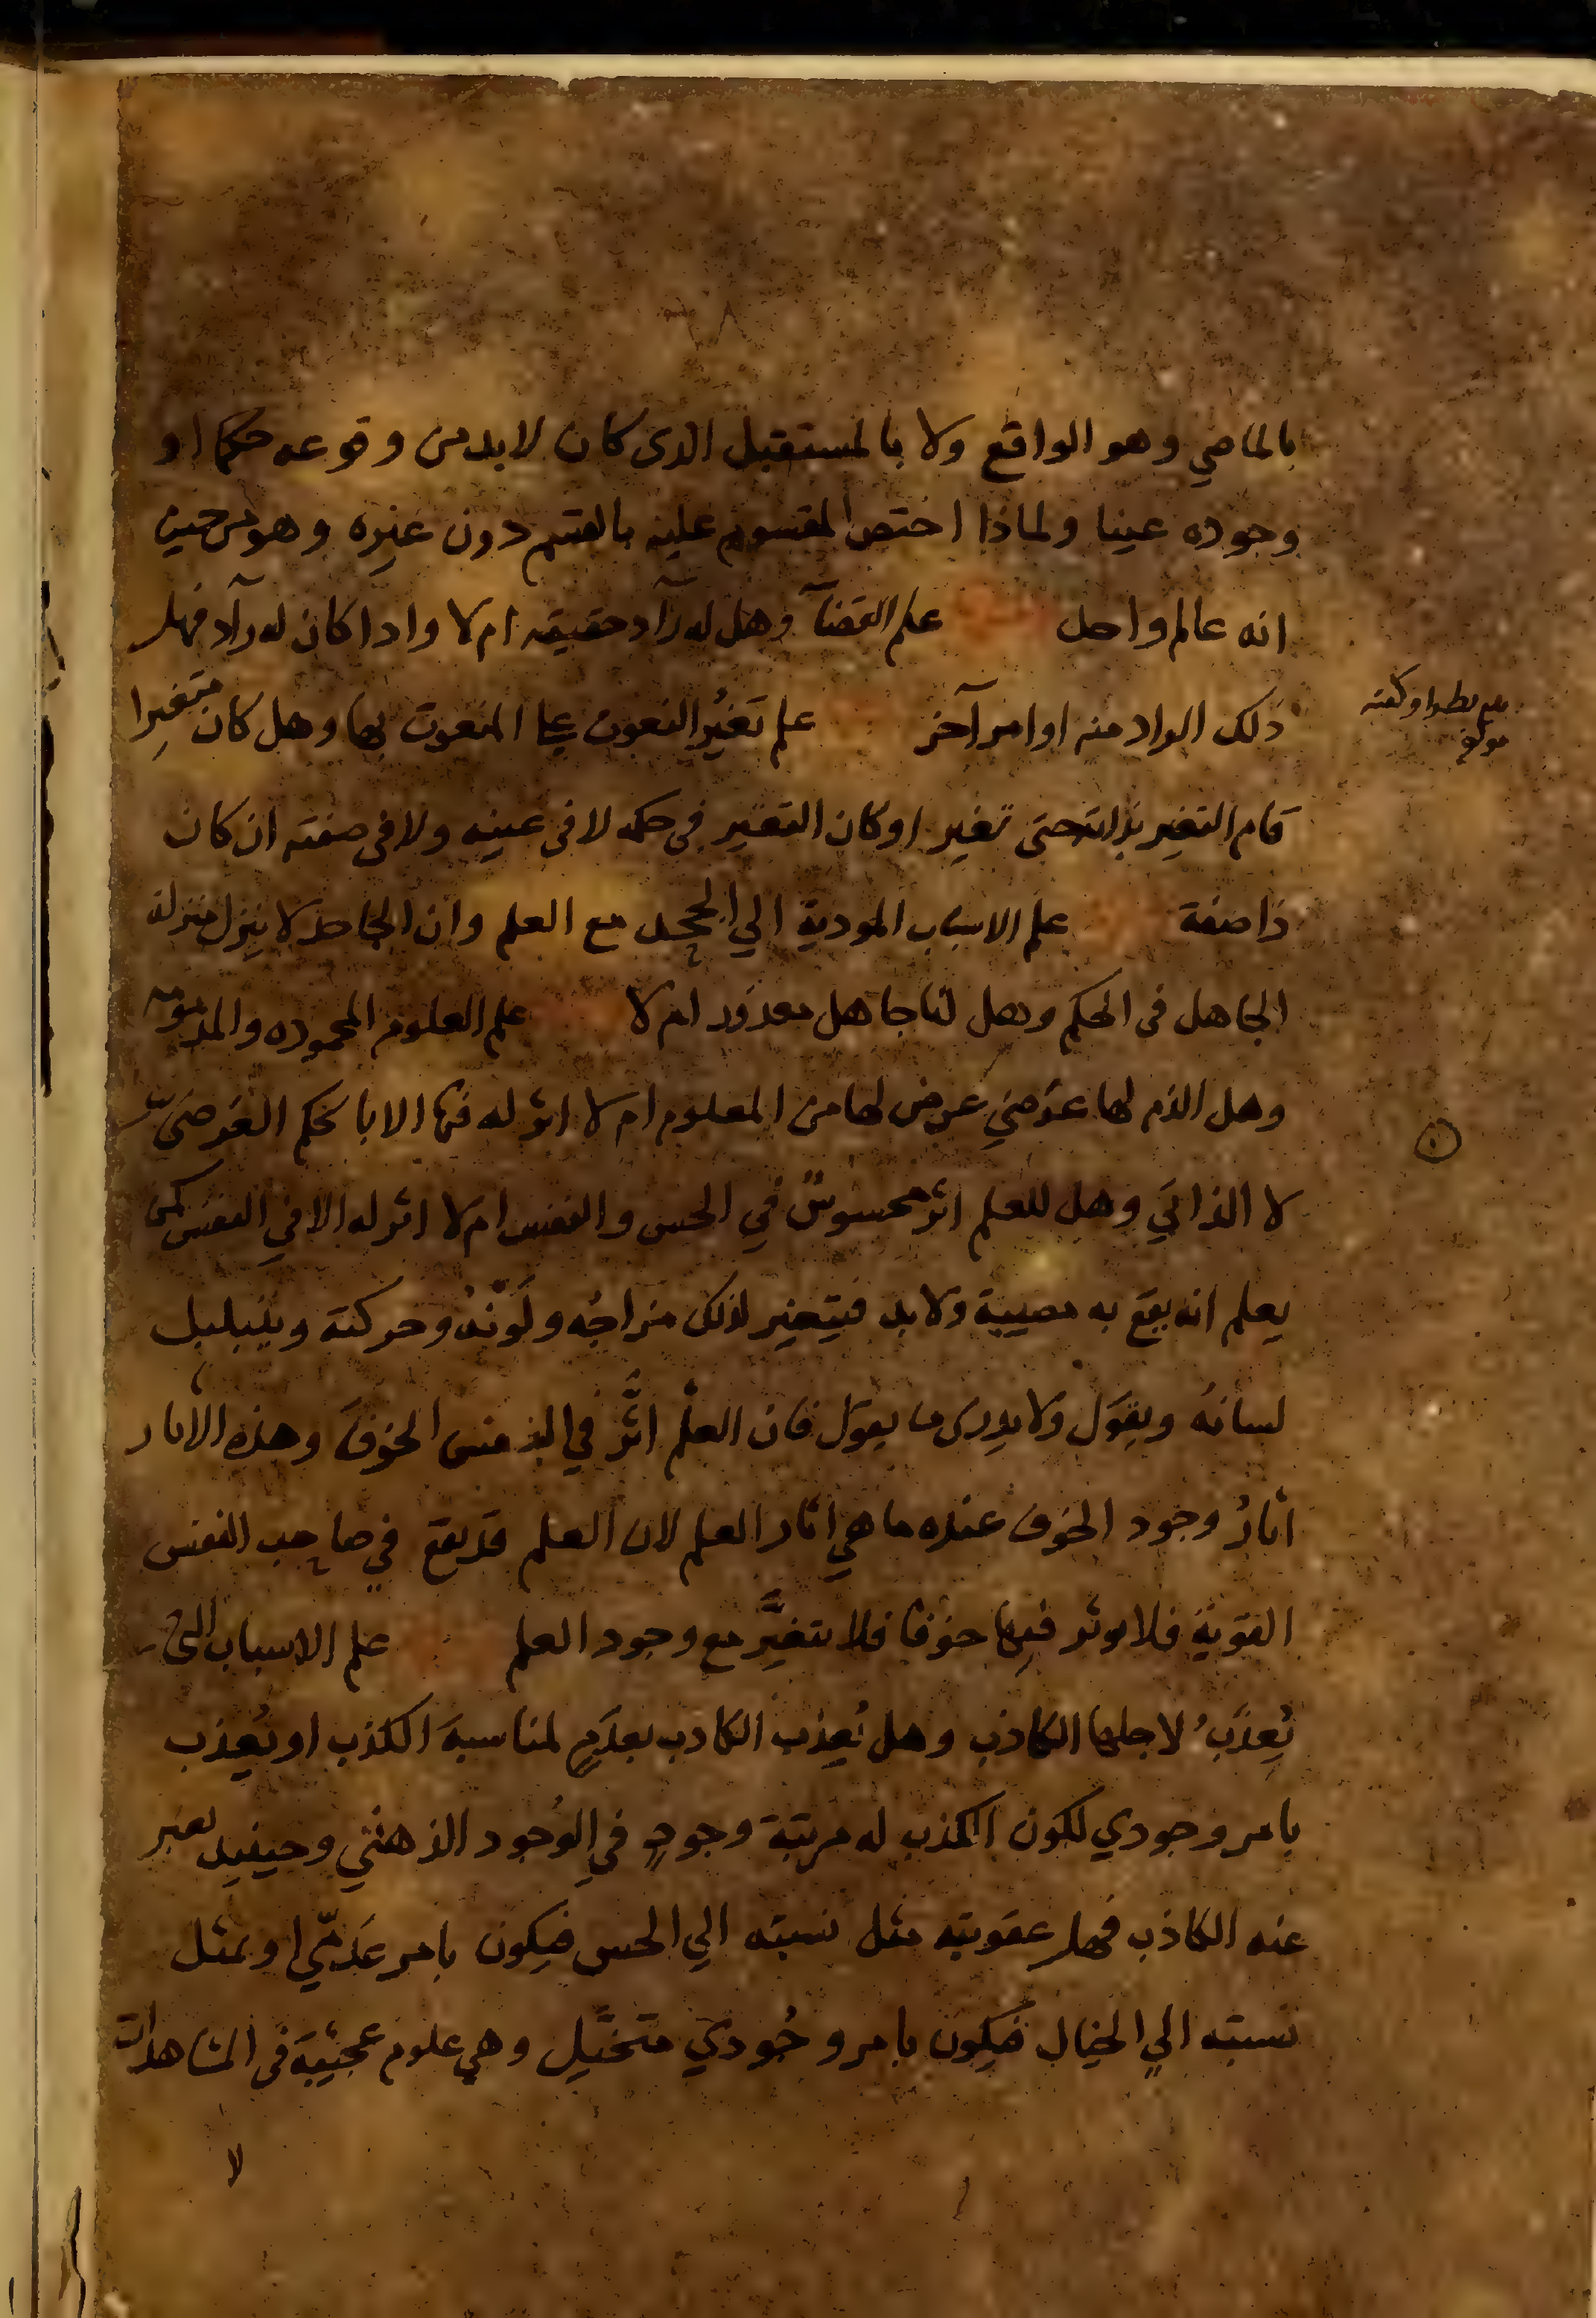 بالماضي وهو الواقع ولا بالمستقبل الذى كان لابد من وقوعه حكما او
وجوده عينا ولماذا اختص المقسوم عليه بالقسم دون غيره وهو من حيث
انه عالم واحد علم القضآ وهل له رآد حقيقه ام لا واذا كان له رآد فهل
ذلك الراد منه او امر آخر علم تغيّر النعوت على المنعوت بها وهل كان متغيرا
قام التغير بذاته حتى تغير او كان التغير فى حكمه لا فى عينه ولا فى صفته ان كان
ذا صفة علم الاسباب المودية الي الجحد مع العلم وان الجاحد لا ينزل منزلة
الجاهل فى الحكم وهل لنا جاهل معذور ام لا علم العلوم المحموده والمذمومه
وهل الذم لها عرضي عرض لها من المعلوم ام لا اثر له فيها الا بالحكم العرضي
لا الذاتي وهل للعلم اثر محسوسٌ في الحس والنفس ام لا اثر له الا في النفس كمن
يعلم انه يقع به مصيبة ولا بد فيتغير لذلك مزاجُه ولَونُه وحركته ويتبلبل
لسانهُ ويقول ولا يدرى ما يقول فان العلم اثَّر في النفس الخوفَ وهذه الاثار
اثارُ وجود الخوف عنده ما هي اثار العلم لان العلم قد يقع في صاحب النفس
القوية فلا يوثر فيها خوفا فلا يتغيَّر مع وجود العلم علم الاسباب التى
يُعذَّبُ لاجلها الكاذب وهل يُعذب الكاذب بعدَمٍ لمناسبة الكذب او يُعذب
بامر وجودي لكون الكذب له مرتبة وجودٍ في الوُجود الذهني وحينيد يعبر
عنه الكاذب فهل عقوبته مثل نسبته الي الحس فيكون بامر عدمّي او بمثل
نسبته الي الخيال فيكون بامر وجُودي متخيَّل وهي علوم عجيبة فى المشاهدات
لا